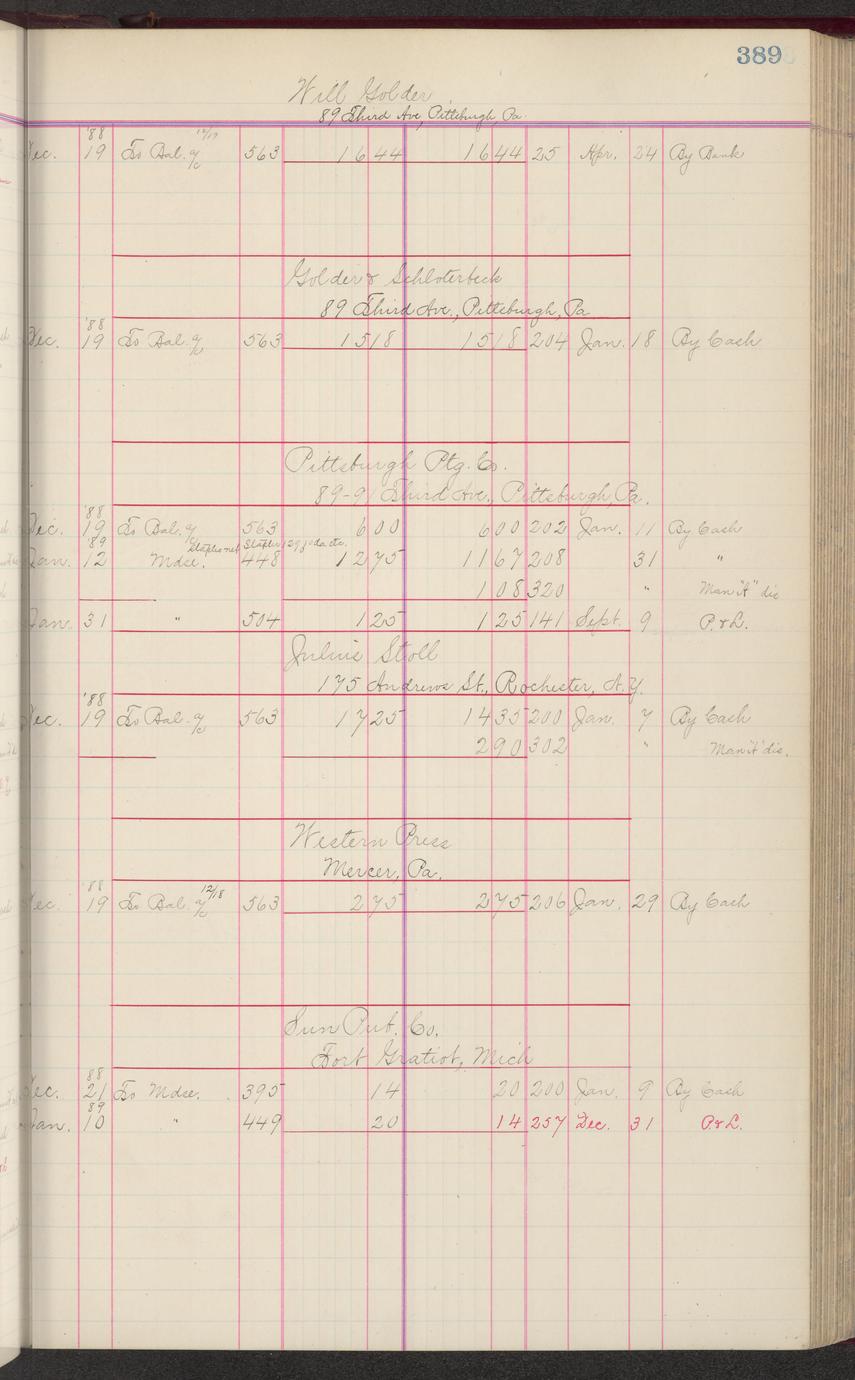 389
Will Golder
89 Third Ave, Pittsburgh, Pa.
'88 12/17
Dec. 19 To Bal. a/c 563 16 44 16 44 25 Apr. 24 By Bank
Golder & Schloterbeck
89 Third Ave., Pittsburgh, Pa
'88
Dec. 19 To Bal. a/c 563 15 18 15 18 204 Jan. 18 By Cash
Pittsburgh Ptg. Co.
89-91 Third Ave., Pittsburgh, Pa.
'88
Dec. 19 To Bal. a/c 563 6 00 6 00 202 Jan. 11 By Cash
'89
Jan. 12 Mdse. 448 12 75 11 67 208 31 "
1 08 320 " Man "A" dis
Jan. 31 " 504 1 25 1 25 141 Sept. 9 P. & L.
Julius Stoll
175 Andrews St., Rochester, N.Y.
'88
Dec. 19 To Bal. a/c 563 17 25 14 35 200 Jan. 7 By Cash
2 90 302 " Man "A" dis.
Western Press
Mercer, Pa.
'88 12/18
Dec. 19 To Bal. a/c 563 2 75 2 75 206 Jan. 29 By Cash
Sun Pub. Co.
Fort Gratiot, Mich
88
Dec. 21 To Mdse. 395 14 20 200 Jan. 9 By Cash
89
Jan. 10 " 449 20 14 257 Dec. 31 P. & L.